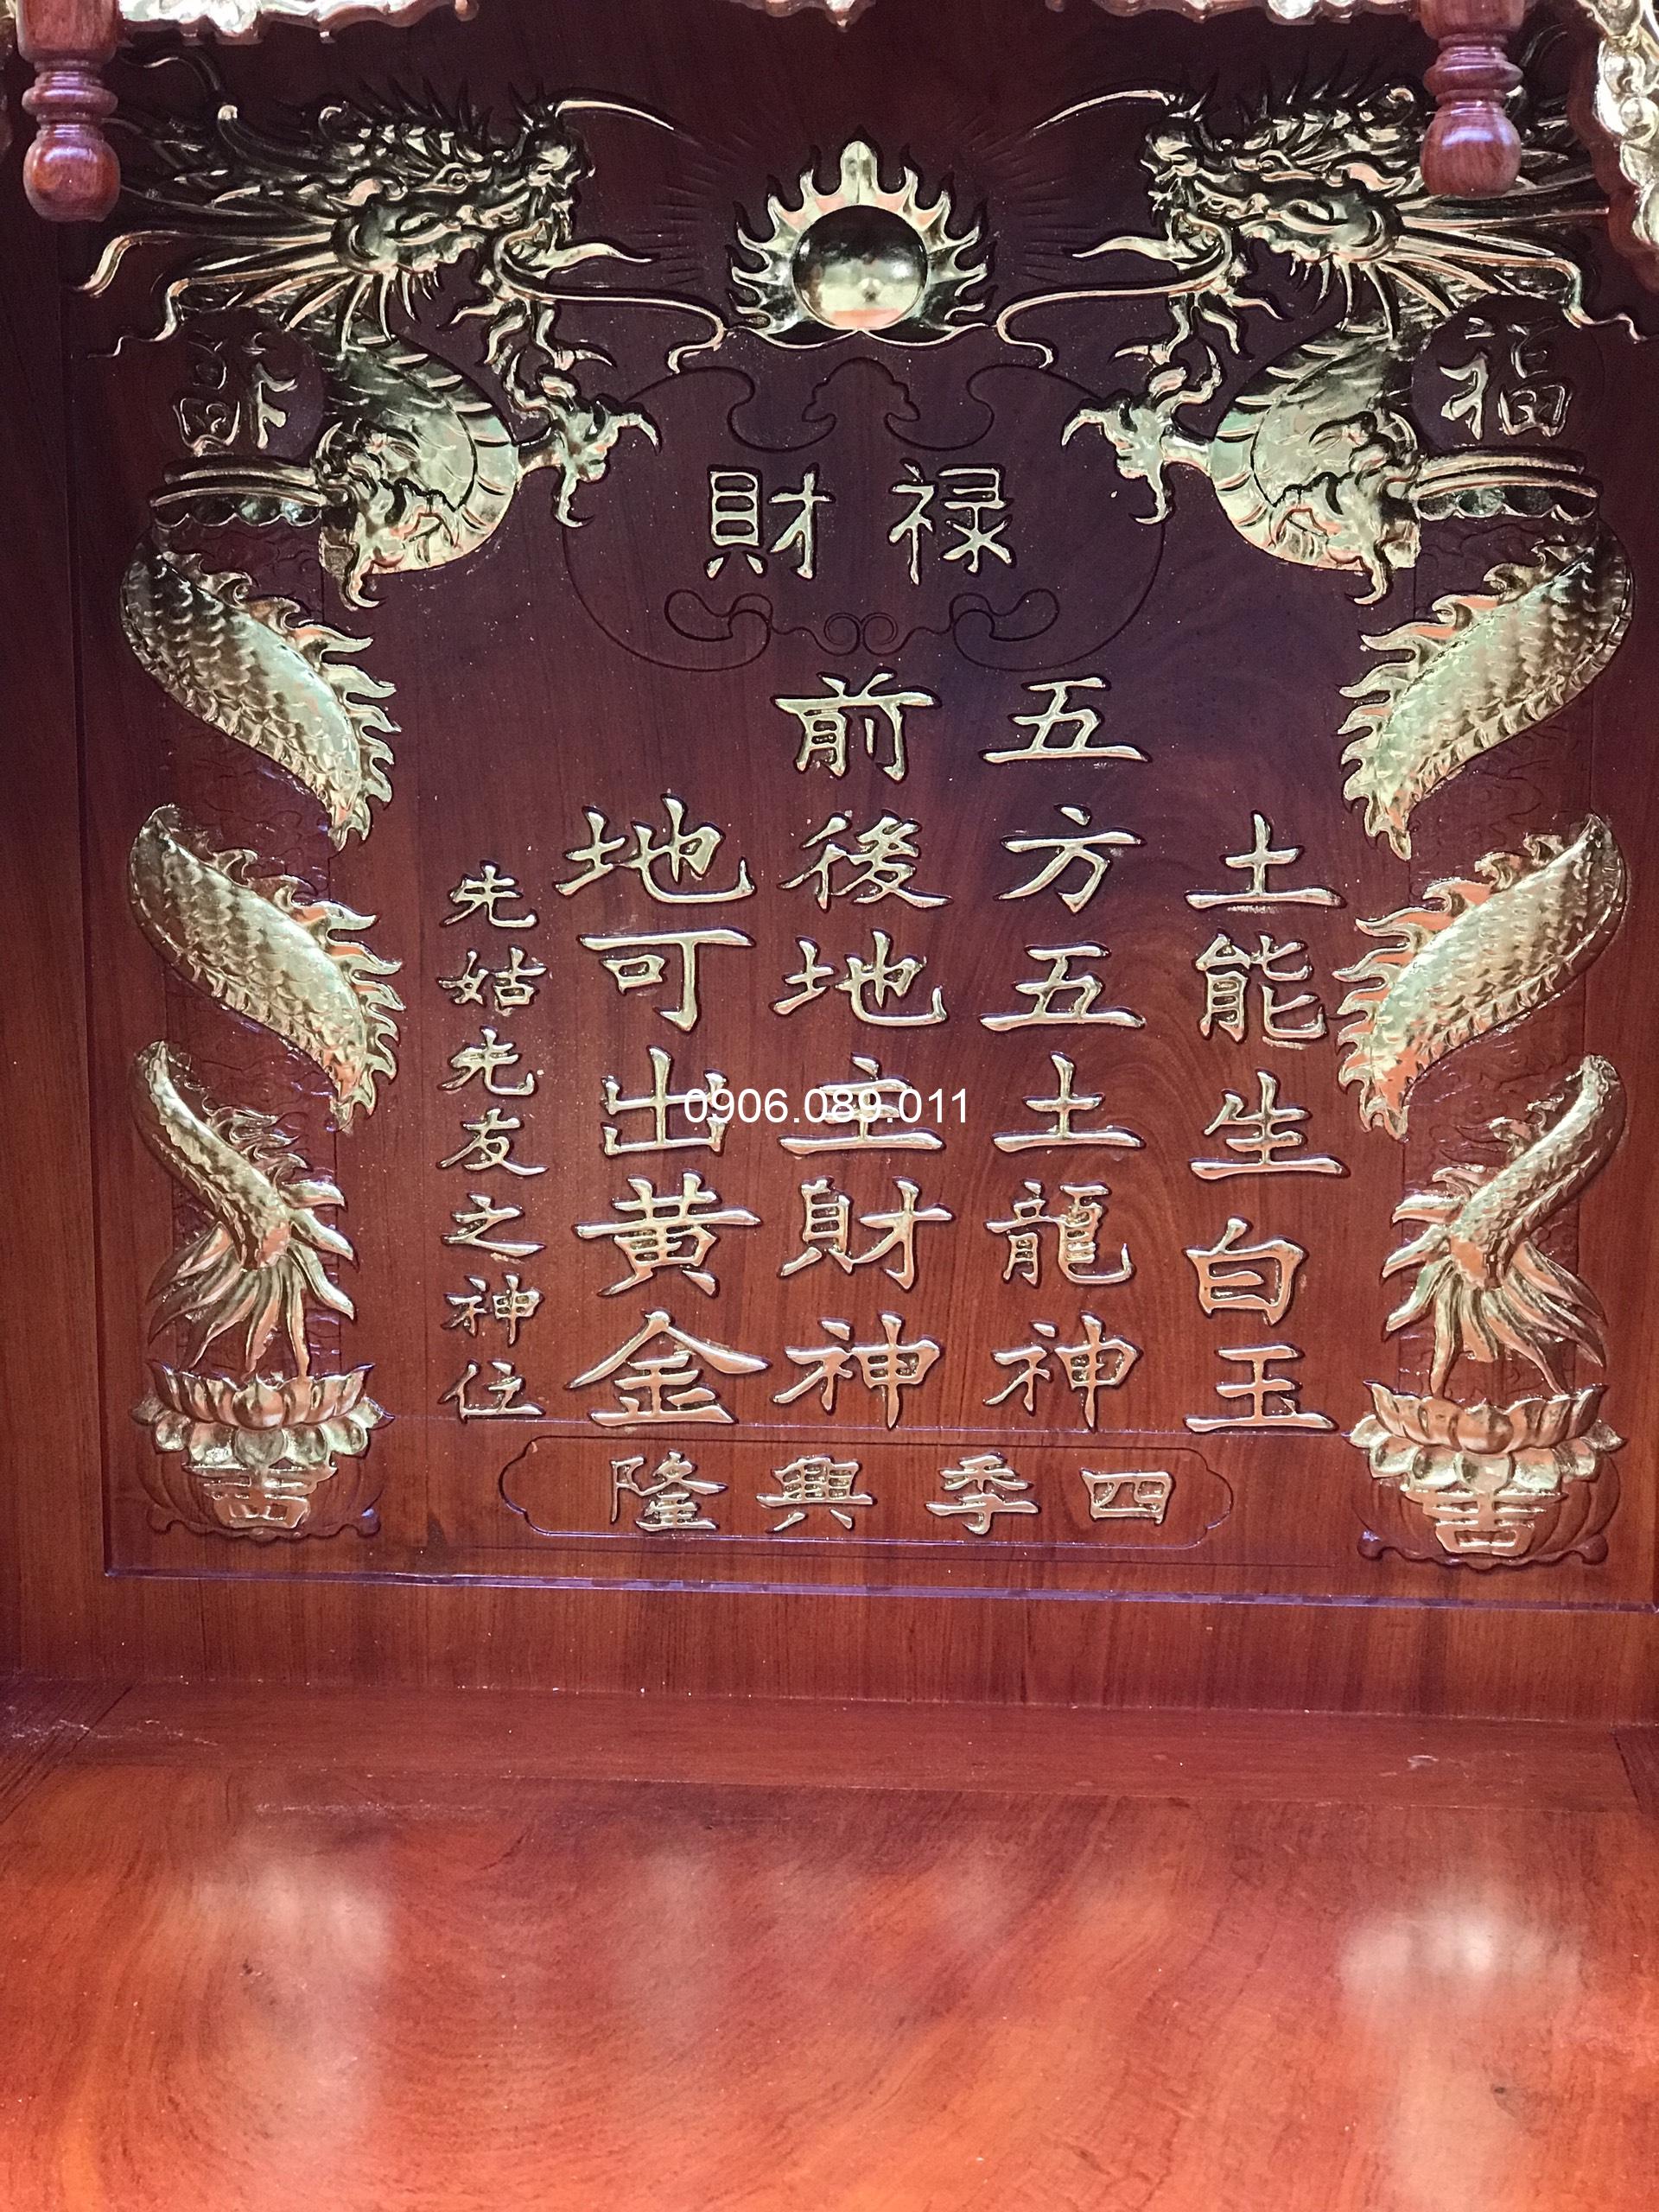 福
禄財
土能生白玉
五方五土龍神
前後地主財神
地可出黃金
先姑先友之神位
四季興隆
0906.089.011